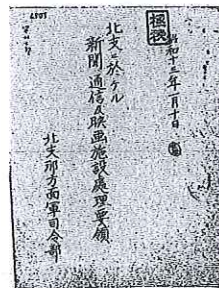 極秘
昭和十三年一月十日
北支ニ於ケル
新聞通信及映画施設處理要領
北支那方面軍司令部